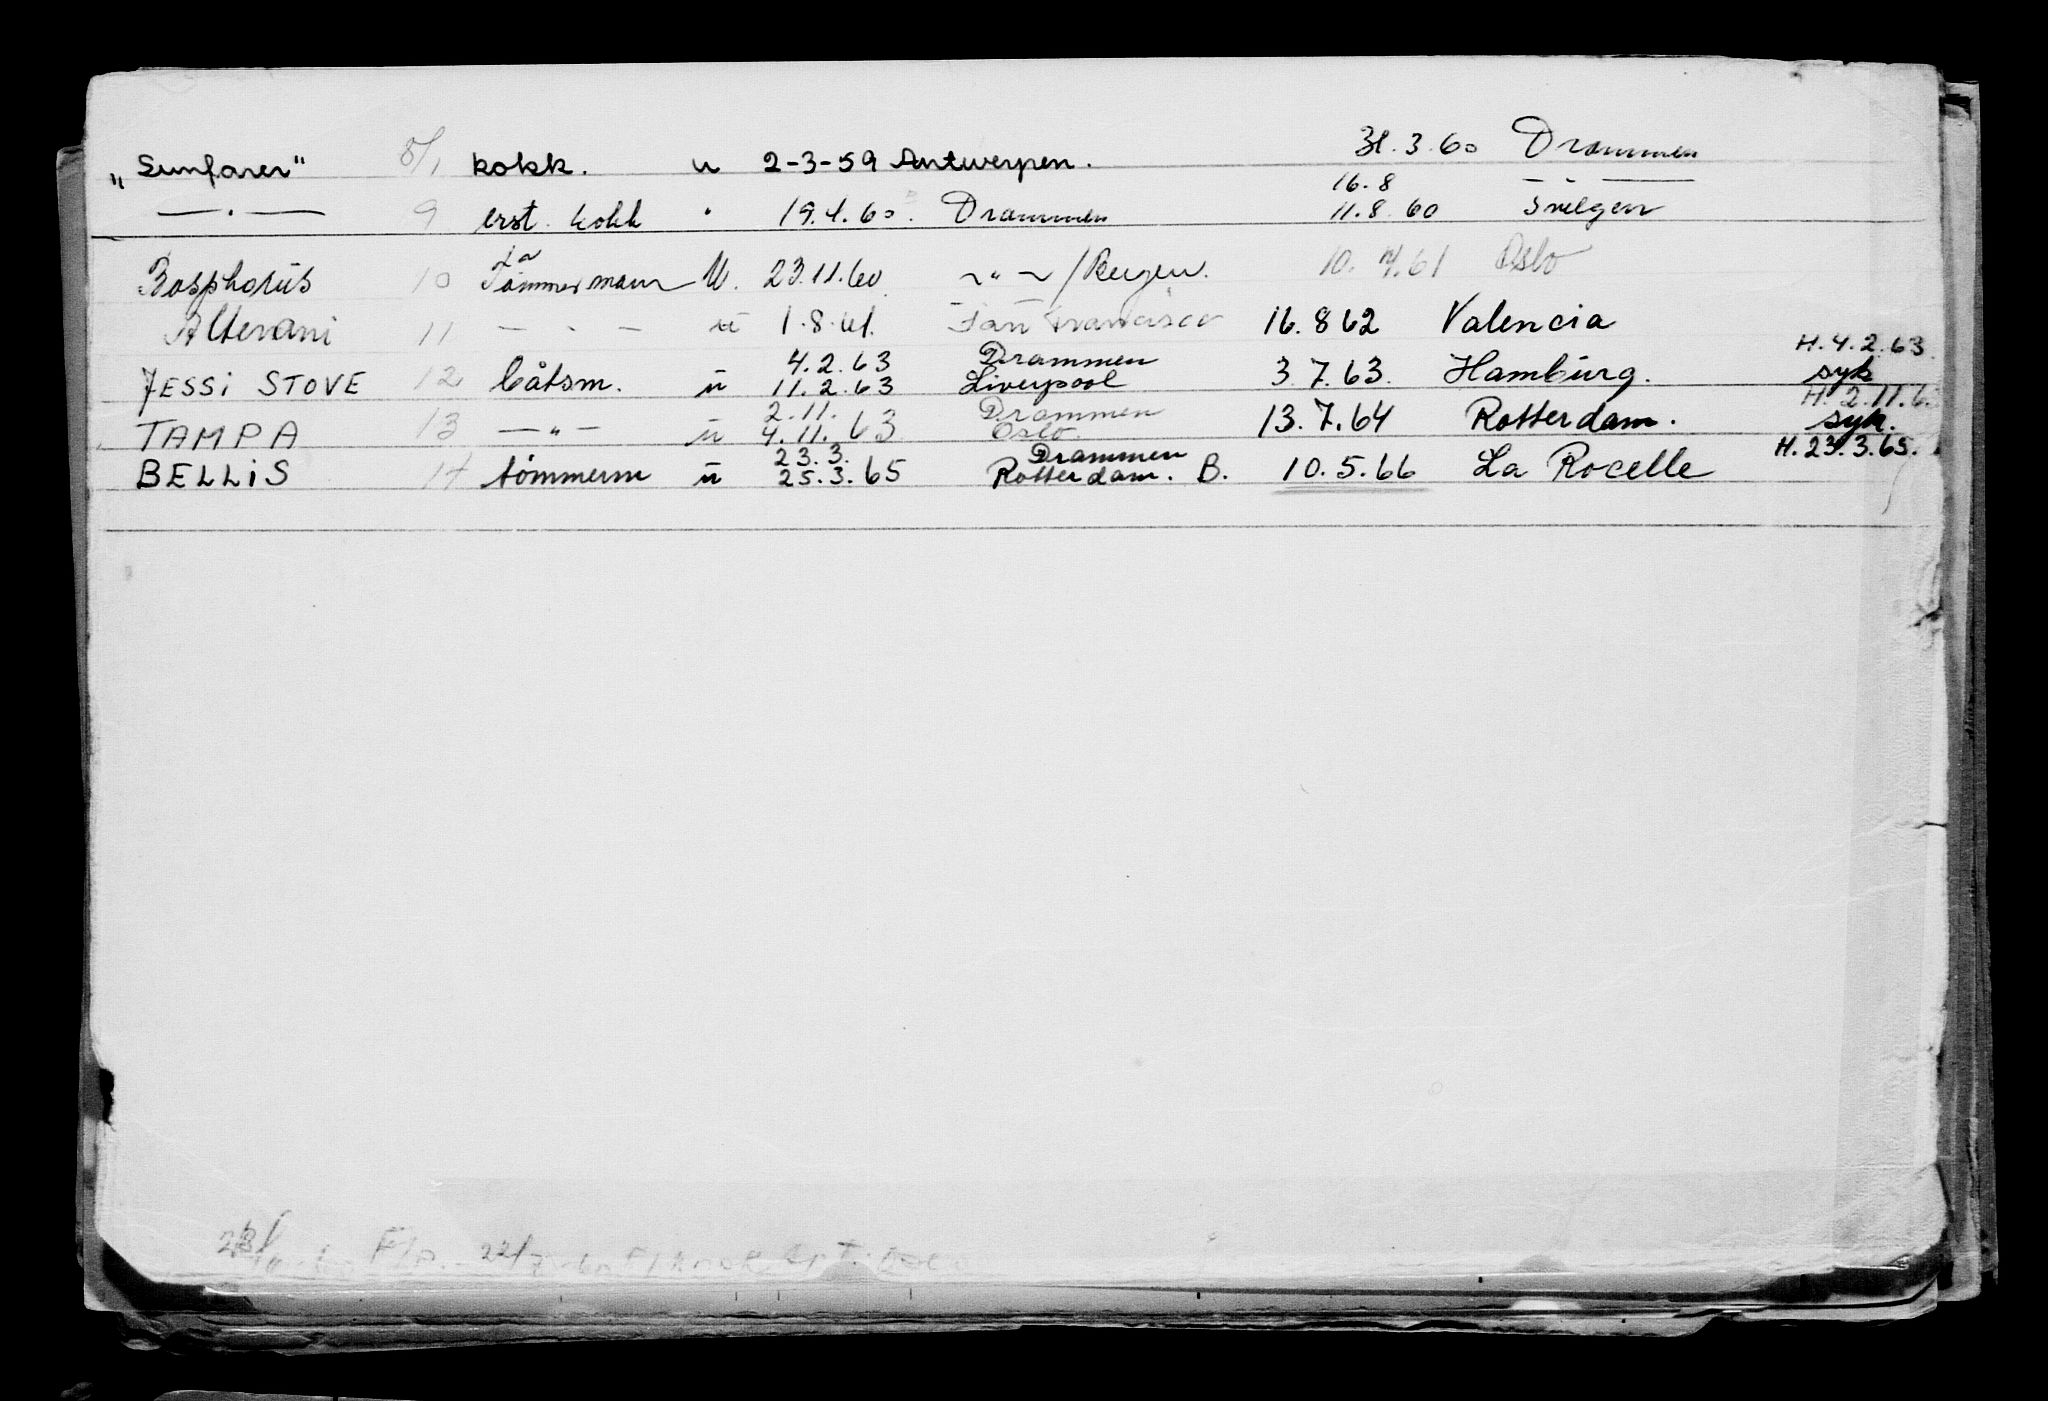 „Sunfarer" 8/1 kokk. u 2-3-59 Antwerpen. 31.3.60 Drammen
— " — 9 erst. kokk " 19.4.60. Drammen 16.8 11.8.60 — " — Svelgen
Bosphorus 10 Tømmermann U. 23.11.60 ~ " ~ /Bergen. 10. 7.61 Oslo
Alterani 11 — " — u 1.8.61. San Francisco 16.8 62 Valencia
H. 4.2.63.
4.2.63 Drammen
JESSI STOVE 12 båtsm. u 11.2.63 Liverpool 3.7.63. Hamburg. syk
2.11. Drammen H. 2.11.63
TAMPA 13 — " — u 4.11.63 Oslo. 13.7.64 Rotterdam. syk.
23.3. Drammen H. 23.3.65.
BELLIS 14 tømmerm u 25.3.65 Rotterdam. B. 10.5.66 La Rocelle
22/7